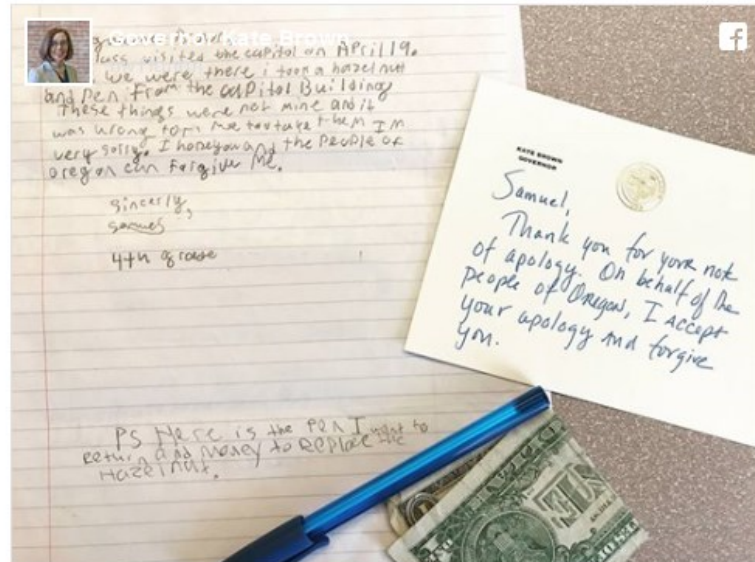 Governor Kate Brown
visited the capitol on April 19.
we were there i took a hazel nut
and Pen from the capitol Building
These things were not mine and it
was wrong for me too take them I'm
very sorry. I hope you and the People of
oregon can forgive me.
sincerly,
samuel
4th grade
PS Here is the Pen I want to
return and money to replace the
Hazelnut.
KATE BROWN
GOVERNOR
Samuel,
Thank you for your note
of apology. On behalf of the
people of Oregon, I accept
your apology and forgive
you.
ONE